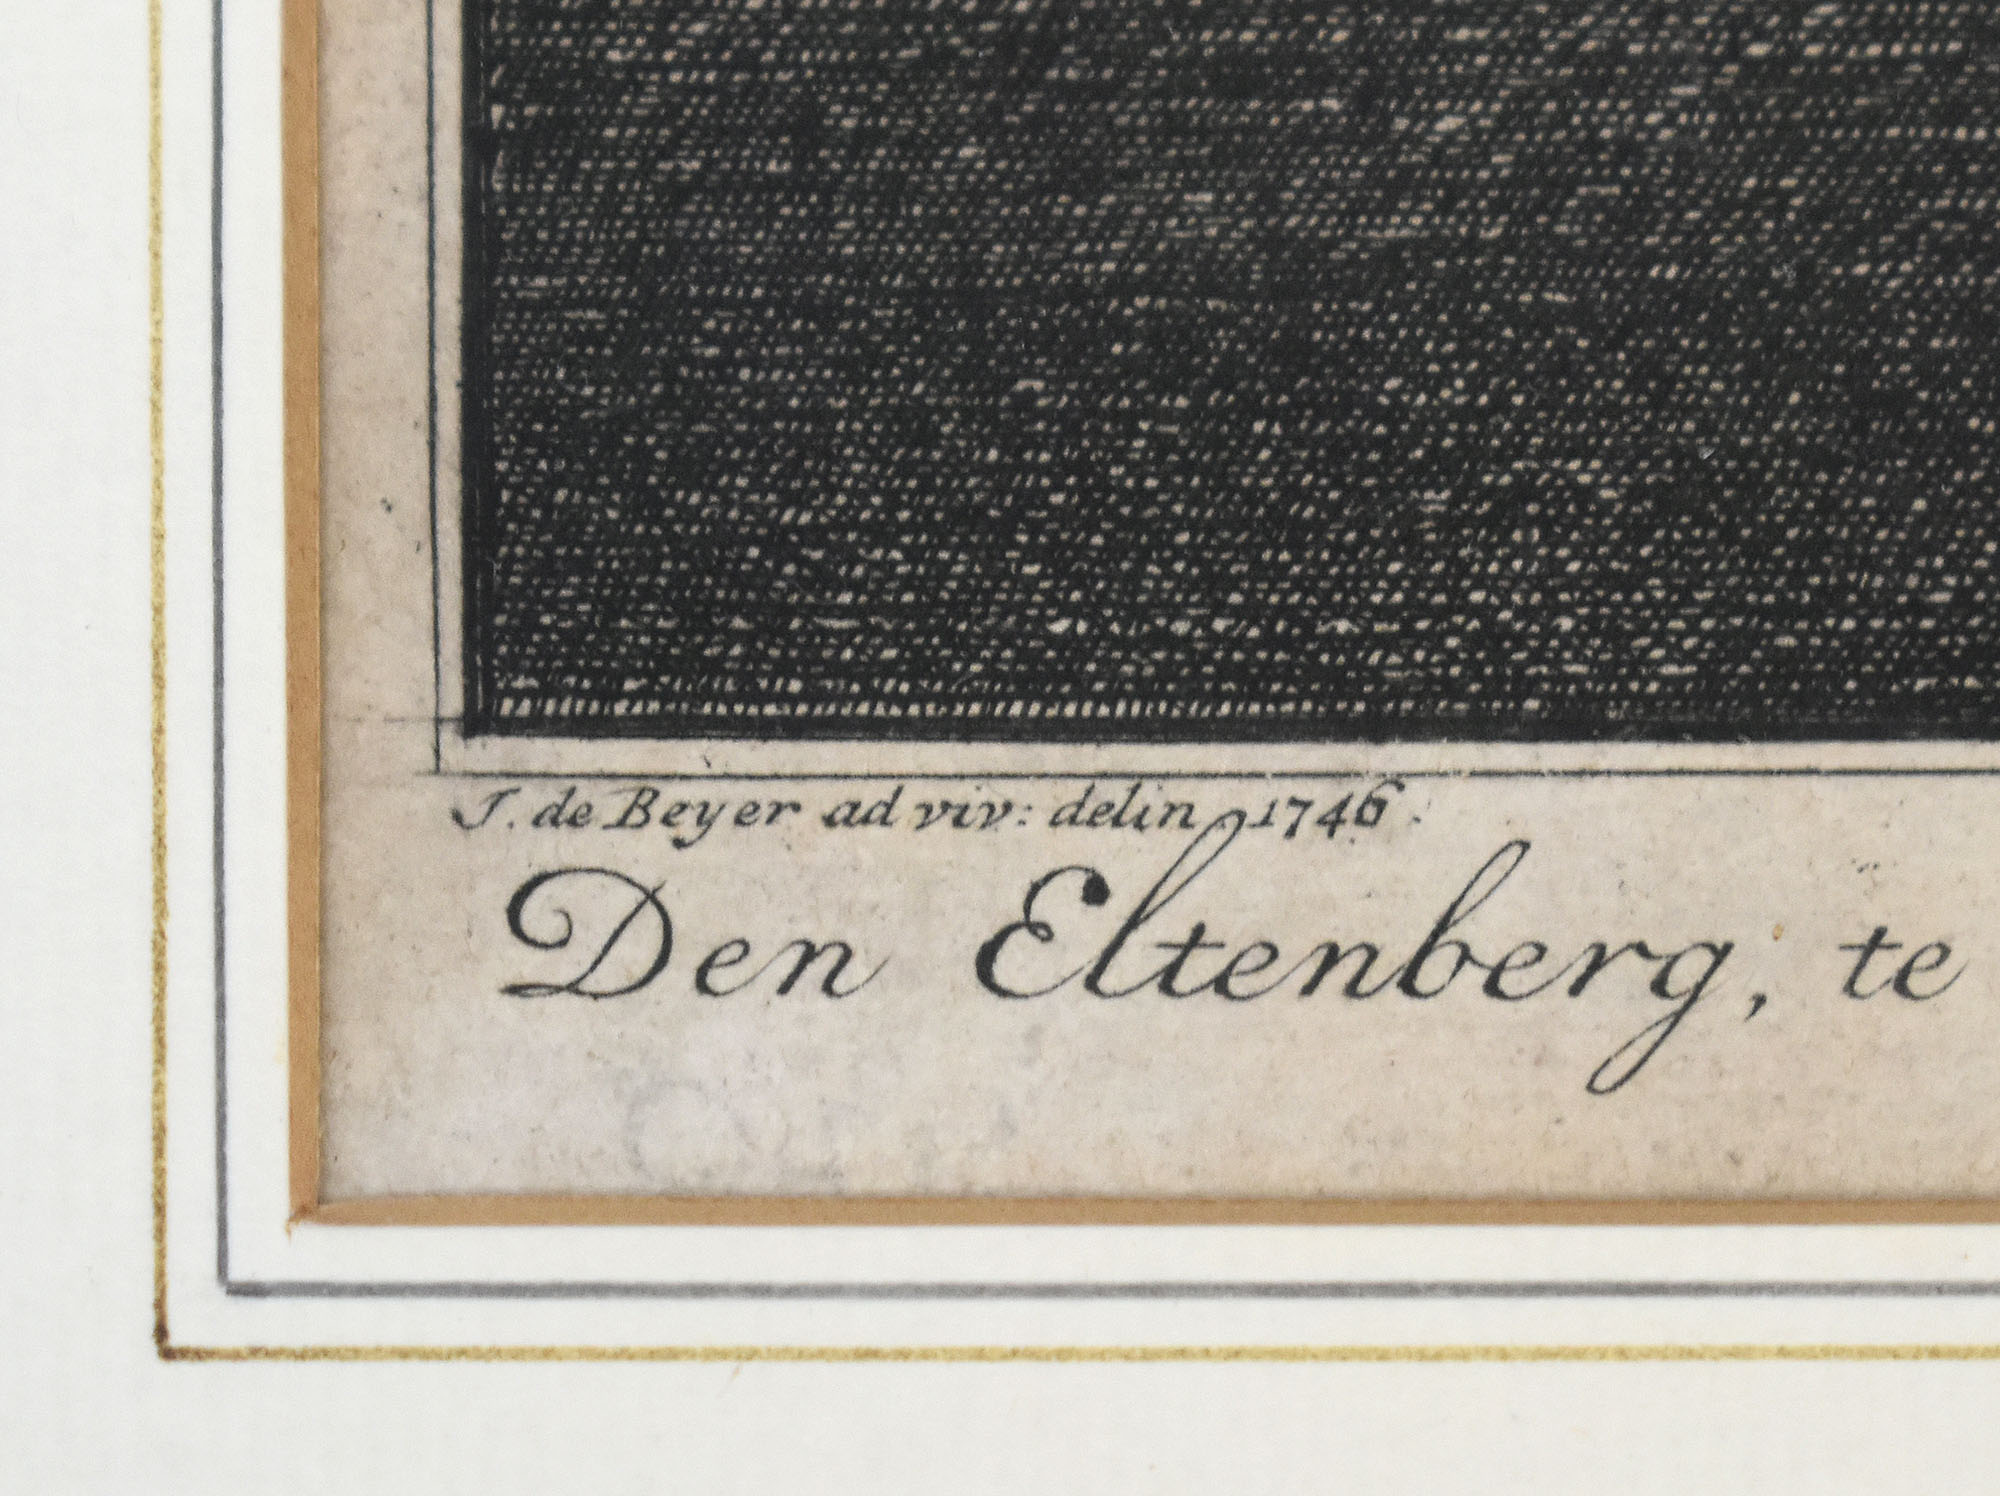 J. de Beyer ad viv: delin 1746.
Den Eltenberg, te